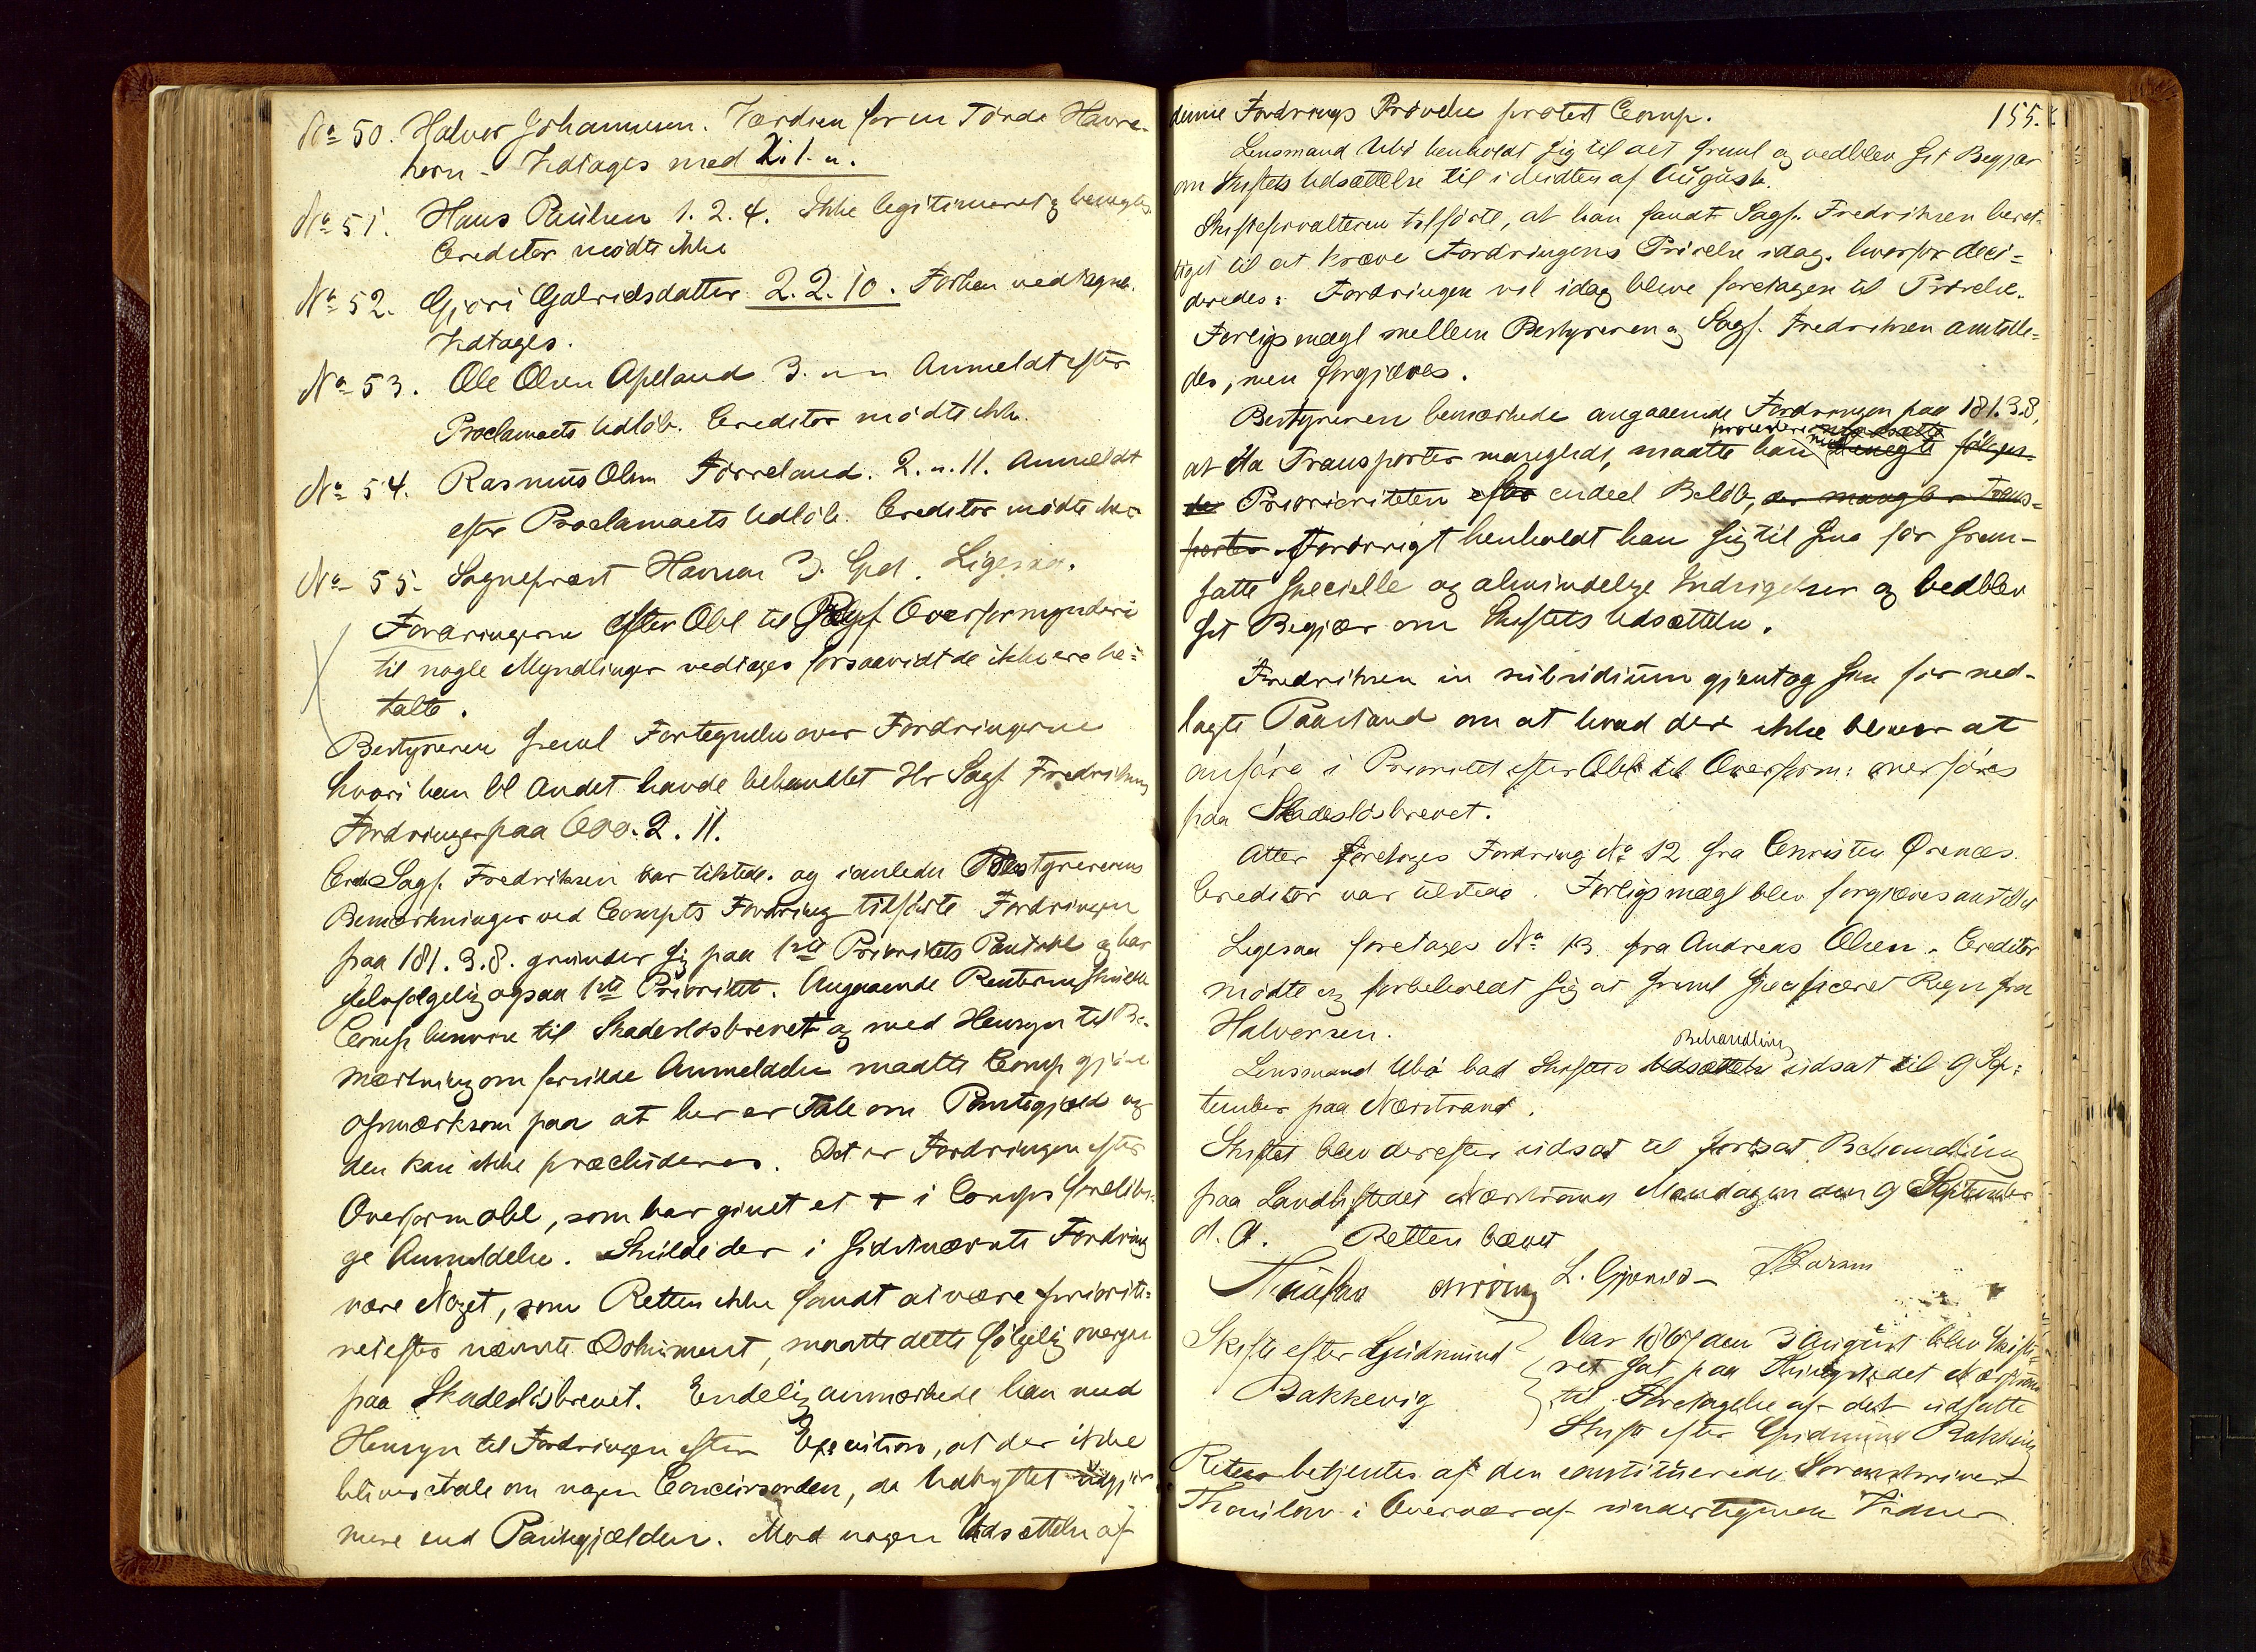 No 50. Halvor Johannesen. Værdien for en Tönde Havre-
korn - Vedtages med 2. 1. u.
No 51. Hans Paulsen 1. 2. 4. Ikke legitimeret og benegtes.
Creditor mödte ikke
No 52. Gjøri Galvridsdatter 2. 2. 10. Forhen vedtagne.
Vedtages.
No 53. Ole Olsen Apeland 3. u u Anmeldt efter
Proclamaets Udlöb. Creditor mödte ikke.
No 54. Rasmus Olsen Törreland. 2. u. 11. Anmeldt
efter Proclamaets Udlöb. Creditor mödte ikke
No 55. Sogneprest 3. Spd. Ligesaa.
Fordringerne efter Obl til Overformynderi
til nogle Myndlinger vedtages forsaavidt de ikke ere be-
talte.
Bestyreren freml Fortegnelse over Fordringerne
hvori han bl Andet havde behandlet Hr Sagf. Fredriksens
Fordringer paa 600. 2. 11.
Sagf. Fredriksen var tilstede. og i anledn Bestyrerens
Bemærkninger ved Compts Fordring tilförte Fordringen
paa 181. 3. 8. grunder sig paa 1ste Prioritets Pantobl og har
selvfølgelig ogsaa 1ste Prioritet. Angaaende Renterne skulde
Comp henvise til Skadeslösbrevet og med Hensyn til Be-
mærkning om forsilde Anmeldelse maatte Comp gjöre
opmærksom paa at her er Tale om Pantegjæld og
den kan ikke præcluderes. Det er Fordringen efter
Overformobl, som har givet et + i Comps foreløbi-
ge Anmeldelse. Skulde der i sidstnævnte Fordring
være Noget, som Retten ikke fandt at være priorite-
ret efter nævnte Dokument, maatte dette følgelig overgaa
paa Skadeslösbrevet. Endelig anmærkede han med
Hensyn til Fordringen efter Execution, at der ikke
bliver tale om nogen Concursorden, da Udbyttet udgjör
mere end Pantegjælden. Mod nogen Udsættelse af
155.
denne Fordrings Prövelse protest Comp.
Lensmand Ubö henholdt sig til det freml og vedblev sit Begjær
om Skiftets Udsættelse til i Midten af August.
Skifteforvalteren tilförte, at han fandt Sagf. Fredriksen beret-
tiget til at kræve Fordringens Prövelse idag. hvorfor deci-
deredes: Fordringen vil idag blive foretagen til Prövelse.
Forligsmægl mellem Bestyreren og Sagf. Fredriksen anstille-
des, men forgjæves.
Bestyreren bemærkede angaaende Fordringen paa 181. 3. 8,
at da Transporter manglede, maatte han benegte følgen-
de Prioriteten efter endeel Belöb, der mangler Trans-
porter. Forövrigt henholdt han sig til sine för frem-
satte specielle og almindelige Indsigelser og vedblev
sit Begjær om Skiftets Udsættelse.
Fredriksen in subsidium gjentog sin för ned-
lagte Paastand om at hvad der ikke bliver at
anføre i Prioritet efter Obl til Overform: overføres
paa Skadeslösbrevet.
Atter foretoges Fordring No 12 fra Christen Ørenæs.
Creditor var tilstede. Forligsmægl blev forgjæves anstillet
Ligesaa foretoges No 13 fra Andreas Olsen. Creditor
mödte og forbeholdt sig at freml specificeret Regn fra
Halvorsen.
Behandling
Lensmand Ubö bad Skiftets Udsættelse udsat til 9 Sep-
tember paa Nærstrand.
Skiftet blev derefter udsat til fortsat Behandling
paa Landhstedet Nærstrand Mandagen den 9 September
d. A. Retten hævet
L. Gjernæs
Skifte efter Gudmund
Bakkevig
Aar 1867 den 3 August blev Skifte-
ret sat paa Thingstedet Nærstrand
til Foretagelse af det udsatte
Skifte efter Gudmund Bakkevig
Retten betjentes af den constituerede Sorenskriver
Thaulow i Overvær af undertegnede Vidner